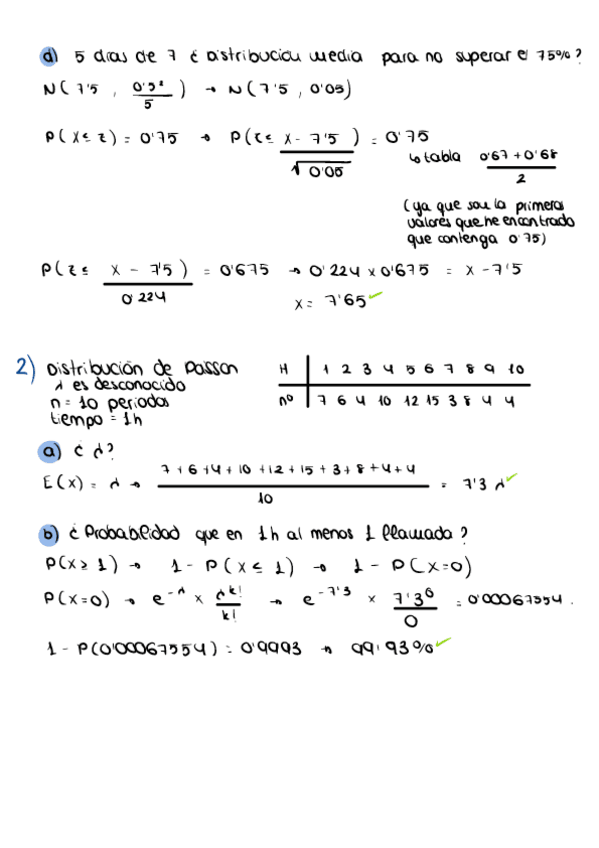 d) 5 días de 7 ¿ Distribución media para no superar el 75%?
N( 7'5 , 0'5² / 5 ) → N( 7'5 , 0'05)
P( X ≤ z ) = 0'75 → P( z ≤ x - 7'5 / √0'05 ) = 0'75
↳ tabla 0'67 + 0'68 / 2
(ya que son la primeros
valores que he encontrado
que contenga 0'75)
P( z ≤ x - 7'5 / 0'224 ) = 0'675 → 0'224 x 0'675 = x - 7'5
x = 7'65 ✓
2) Distribución de Poisson
λ es desconocido
n = 10 periodos
tiempo = 1h
H | 1 2 3 4 5 6 7 8 9 10
nº | 7 6 4 10 12 15 3 8 4 4
a) ¿ λ?
E(x) = λ → 7 + 6 + 4 + 10 + 12 + 15 + 3 + 8 + 4 + 4 / 10 = 7'3 λ ✓
b) ¿ Probabilidad que en 1h al menos 1 llamada ?
P(X ≥ 1) → 1 - P( X ≤ 1) → 1 - P( X = 0)
P(X=0) → e^-λ x λ^k! / k! → e^-7'3 x 7'3⁰ / 0 = 0'00067554.
1 - P(0'00067554) = 0'9993 → 99'93% ✓